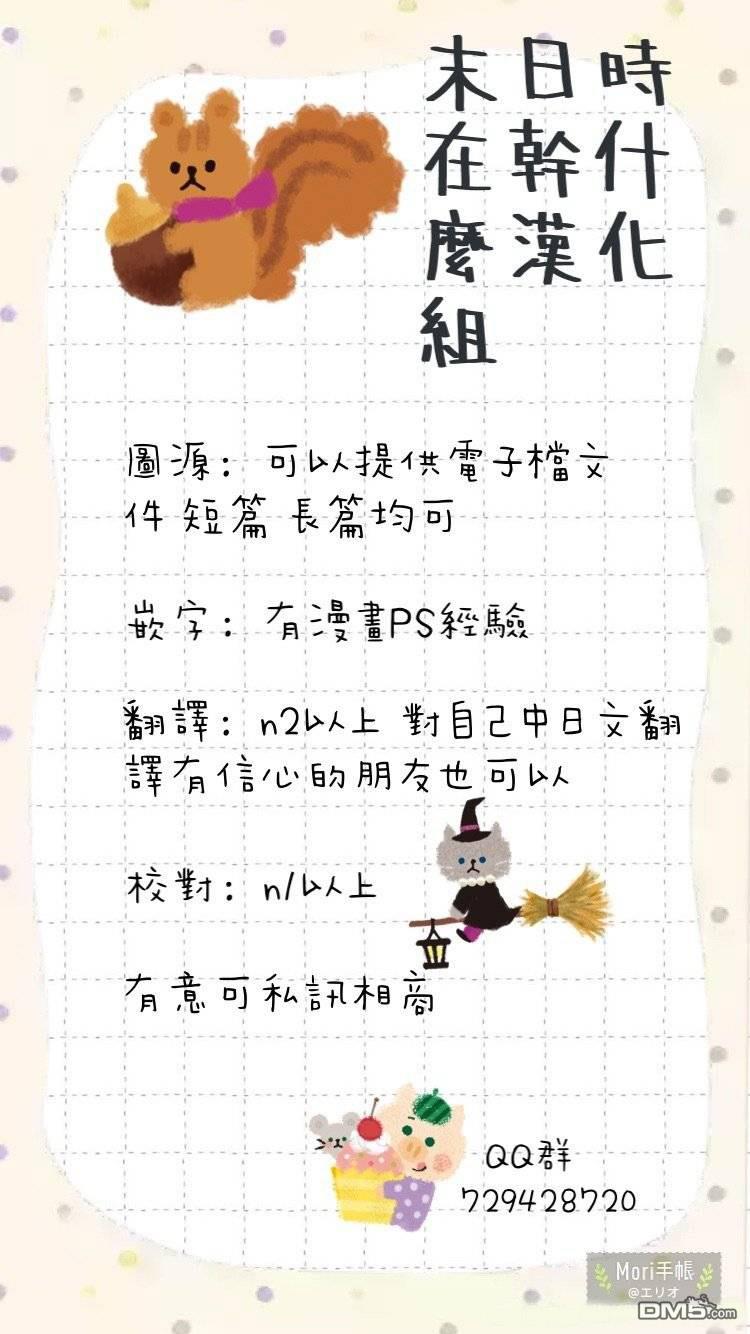 末日時
在幹什
麼漢化
組
圖源：可以提供電子檔文
件 短篇 長篇均可
嵌字：有漫畫PS經驗
翻譯：n2以上 對自己中日文翻
譯有信心的朋友也可以
校對：n1以上
有意可私訊相商
QQ群
729428720
Mori手帳
@エリオ
DM5.com